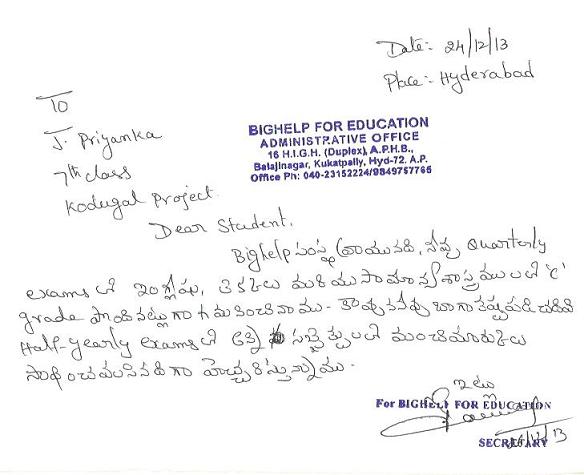 Date:- 24/12/13
Place:- Hyderabad
To
J. Priyanka
7th class
Kodugal Project.
BIGHELP FOR EDUCATION
ADMINISTRATIVE OFFICE
16 H.I.G.H. (Duplex), A.P.H.B.,
Balajinagar, Kukatpally, Hyd-72. A.P.
Office Ph: 040-23152224/9849757765
Dear Student,
Bighelp సంస్థ వ్రాయునది, నీవు Quarterly
exams లో ఇంగ్లీషు, లెక్కలు మరియు సామాన్యశాస్త్రములలో 'C'
grade పొందినట్లుగా గమనించినాము. కావున నీవు బాగా కష్టపడి చదివి
Half-yearly exams లో అన్ని సబ్జెక్టులలో మంచి మార్కులు
సాధించవలసినదిగా హెచ్చరిస్తున్నాము.
ఇట్లు
For BIGHELP FOR EDUCATION
SECRETARY